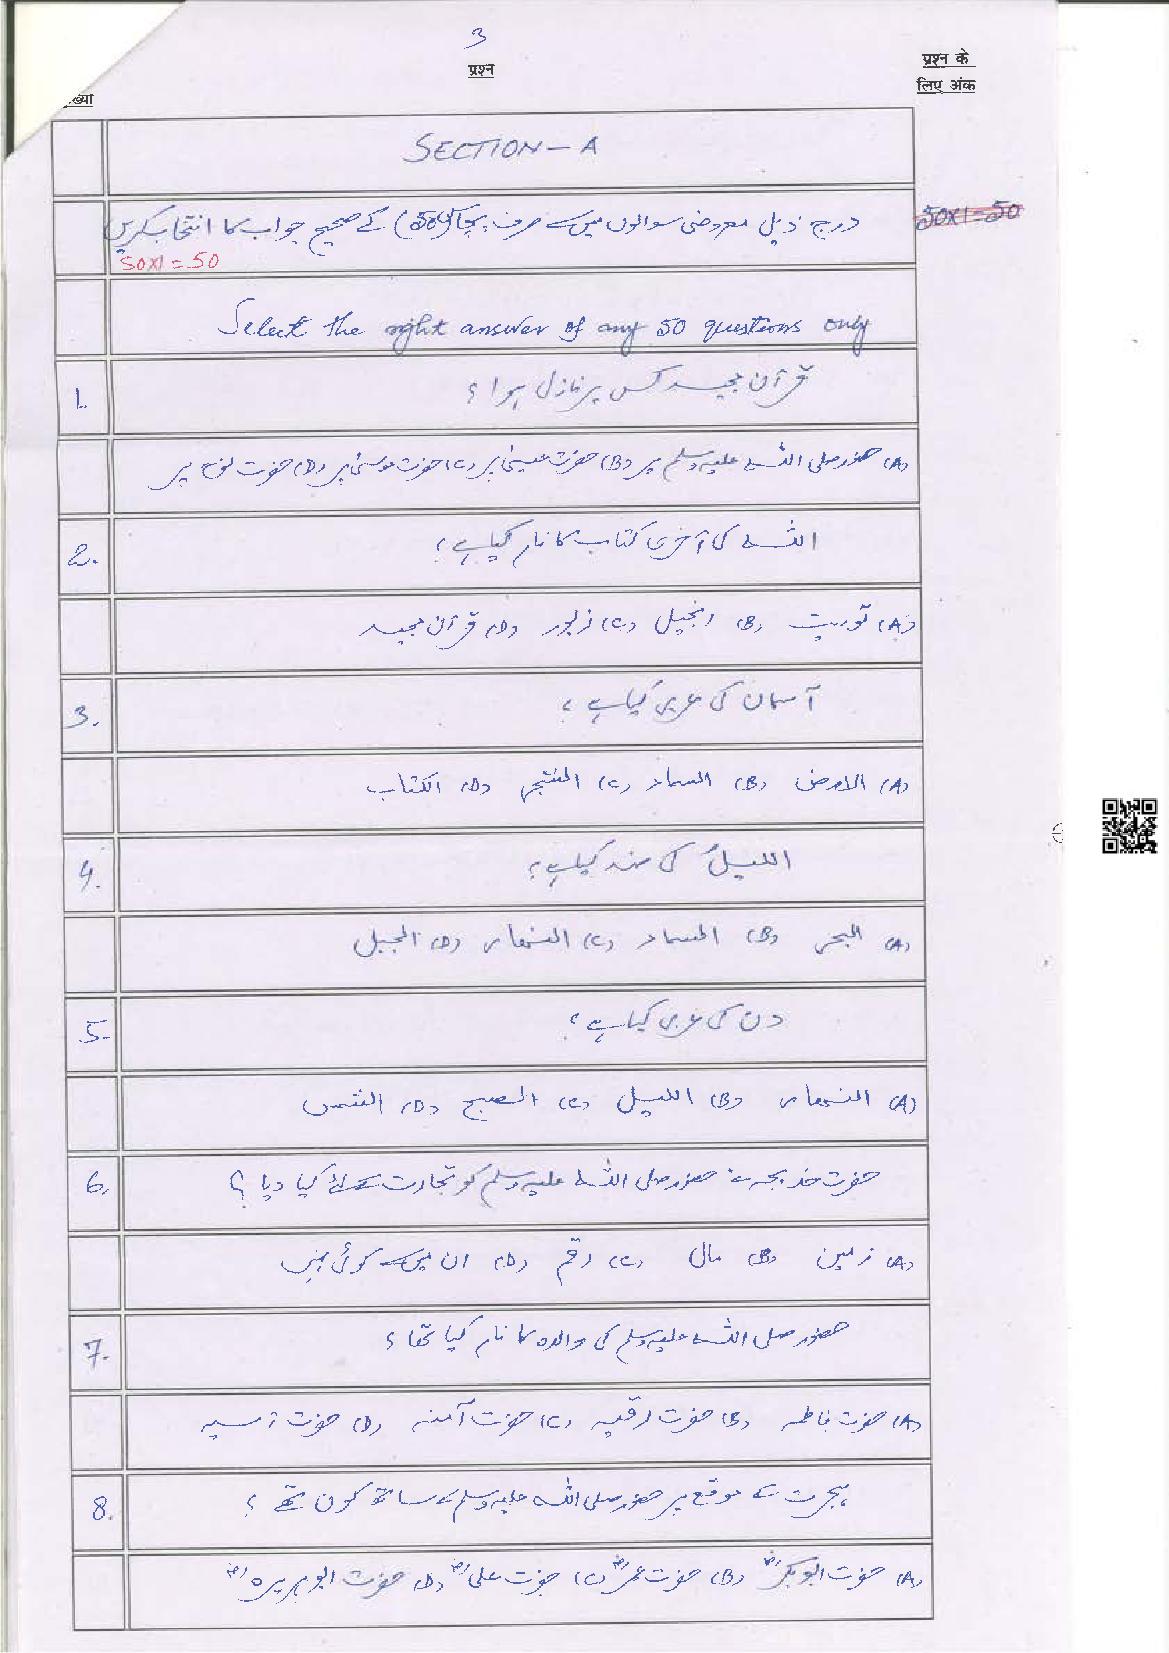 3
प्रश्न
प्रश्न के
लिए अंक
ख्या
SECTION - A
درج ذیل معروضی سوالوں میں سے صرف پچاس (50) کے صحیح جواب کا انتخاب کریں
50x1=50
50x1=50
Select the right answer of any 50 questions only
1. قرآن مجید کس پر نازل ہوا؟
(A) حضور صلی اللہ علیہ وسلم پر (B) حضرت عیسیٰ پر (C) حضرت موسیٰ پر (D) حضرت نوح پر
2. اللہ کی آخری کتاب کا نام کیا ہے؟
(A) توریت (B) انجیل (C) زبور (D) قرآن مجید
3. آسمان کی عربی کیا ہے؟
(A) الارض (B) السماء (C) (D) الکتاب
4. اللیل کی ضد کیا ہے؟
(A) البحر (B) السماء (C) النھار (D) الجبل
5. دن کی عربی کیا ہے؟
(A) النھار (B) اللیل (C) الصبح (D) الشمس
6. حضرت خدیجہ نے حضور صلی اللہ علیہ وسلم کو تجارت کے لئے کیا دیا؟
(A) زمین (B) مال (C) رقم (D) ان میں سے کوئی نہیں
7. حضور صلی اللہ علیہ وسلم کی والدہ کا نام کیا تھا؟
(A) حضرت فاطمہ (B) حضرت رقیہ (C) حضرت آمنہ (D) حضرت آسیہ
8. ہجرت کے موقع پر حضور صلی اللہ علیہ وسلم کے ساتھ کون تھے؟
(A) حضرت ابوبکرؓ (B) حضرت عمرؓ (C) حضرت علیؓ (D) حضرت ابو ہریرہؓ